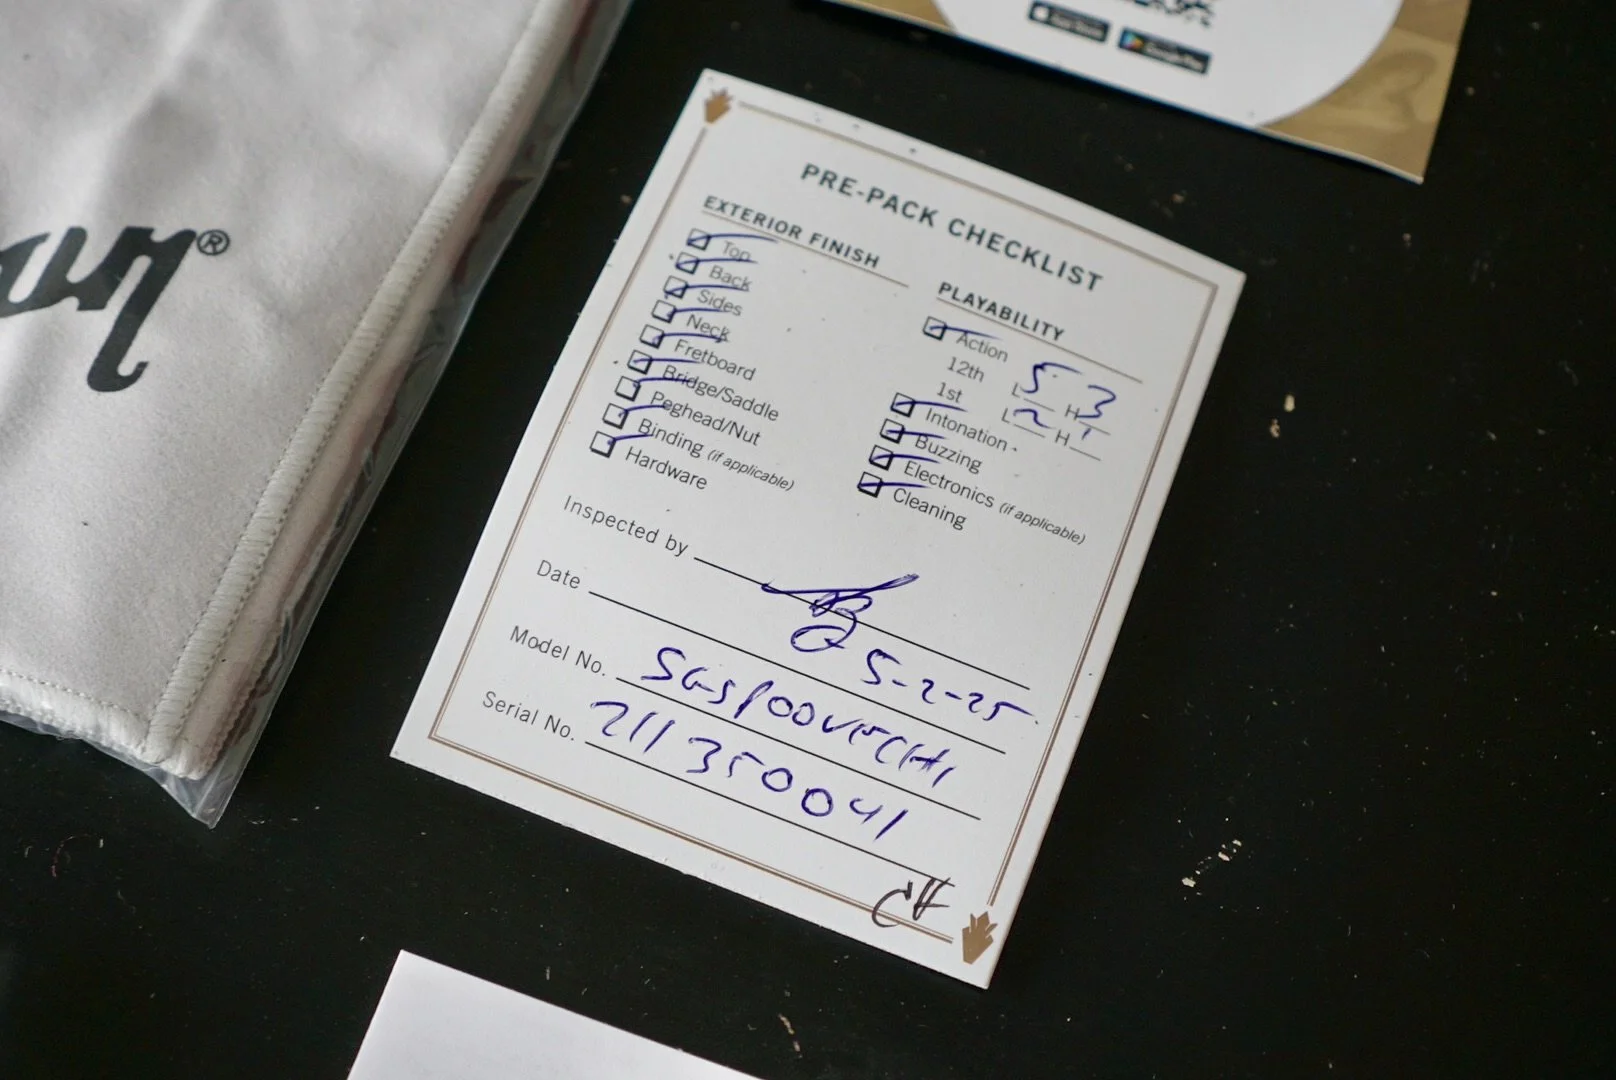 PRE-PACK CHECKLIST
EXTERIOR FINISH
Top
Back
Sides
Neck
Fretboard
Bridge/Saddle
Peghead/Nut
Binding (if applicable)
Hardware
PLAYABILITY
Action
12th L 5 H 3
1st L 2 H 1
Intonation
Buzzing
Electronics (if applicable)
Cleaning
Inspected by
Date 5-2-25
Model No. SGS100VECH1
Serial No. 211350041
Google Play
®